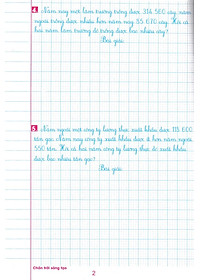 4. Năm nay một lâm trường trồng được 316 560 cây, năm
ngoái trồng được nhiều hơn năm nay 55 670 cây. Hỏi cả
hai năm lâm trường đó trồng được bao nhiêu cây?
Bài giải
5. Năm ngoái một công ty lương thực xuất khẩu được 115 600
tấn gạo. Năm nay công ty xuất khẩu được ít hơn năm ngoái
550 tấn. Hỏi cả hai năm công ty lương thực đó xuất khẩu
được bao nhiêu tấn gạo?
Bài giải
Chân trời sáng tạo
2